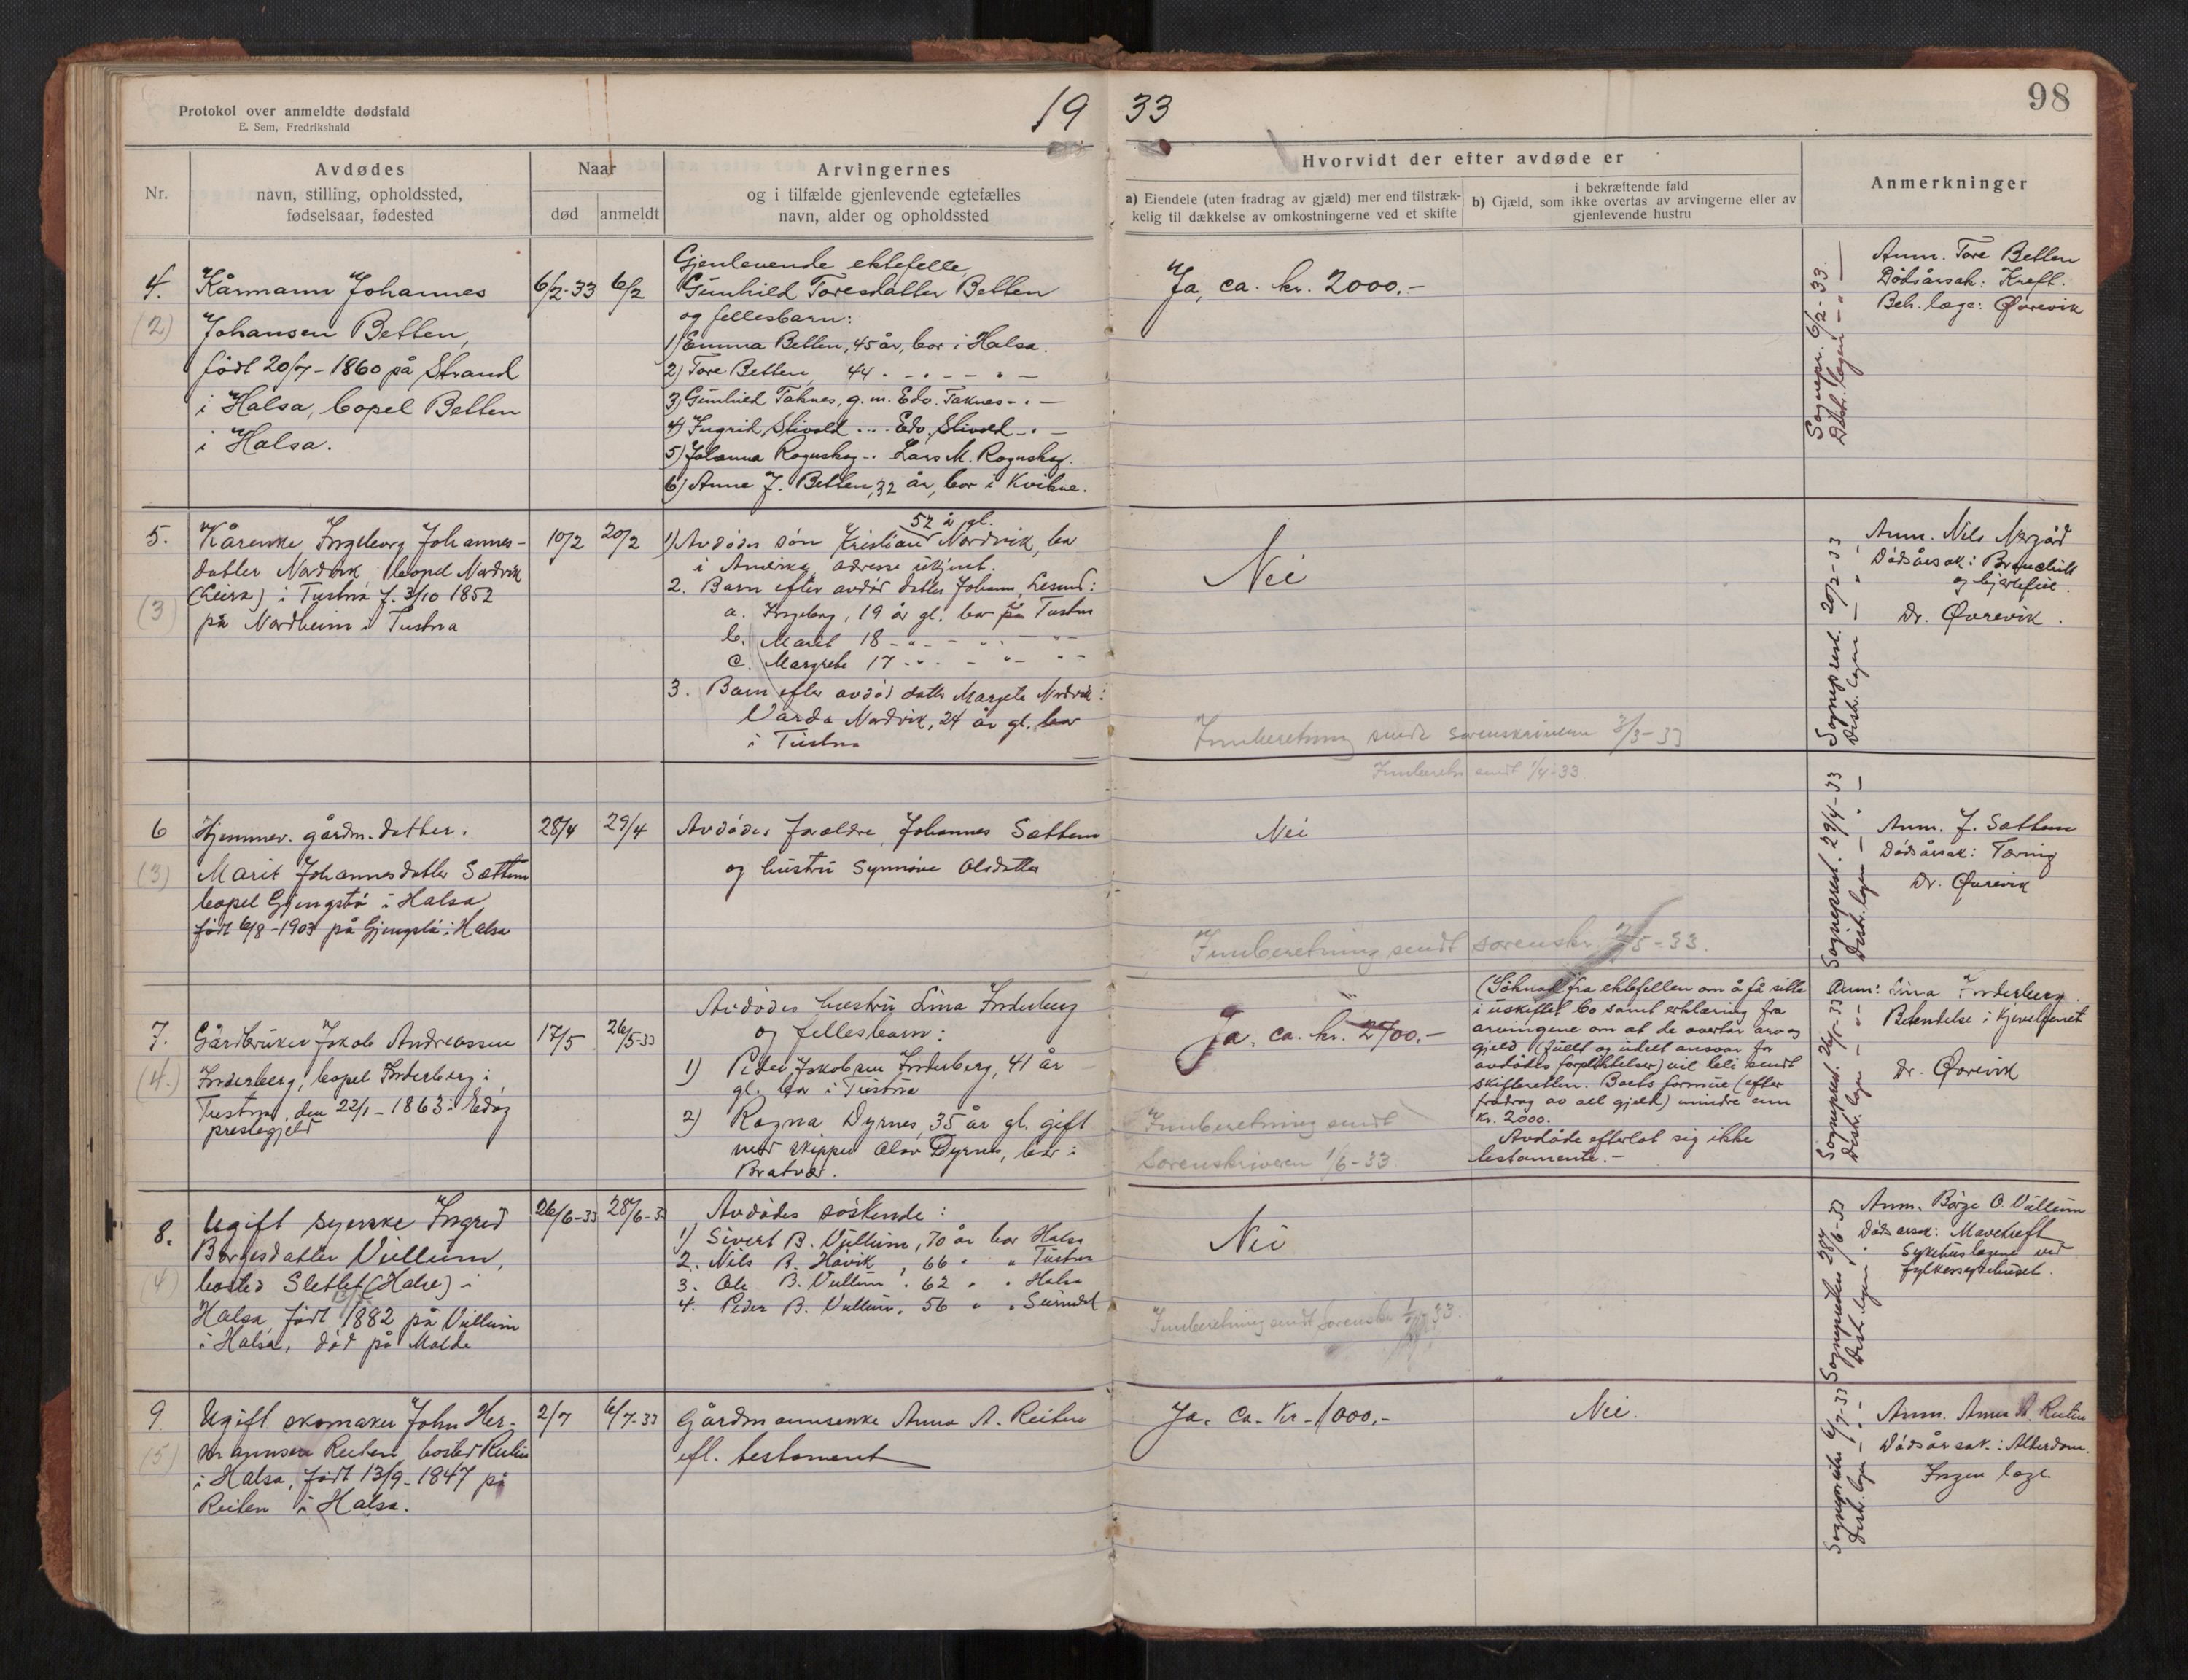 Protokol over anmeldte dødsfald
E. Sem, Fredrikshald
19 33
98
Nr.
Avdødes
navn, stilling, opholdssted,
fødselsaar, fødested
Naar
død
anmeldt
Arvingernes
og i tilfælde gjenlevende egtefælles
navn, alder og opholdssted
Hvorvidt der efter avdøde er
a) Eiendele (uten fradrag av gjæld) mer end tilstræk-
kelig til dækkelse av omkostningerne ved et skifte
i bekræftende fald
b) Gjæld, som ikke overtas av arvingerne eller av
gjenlevende hustru
Anmerkninger
4.
(2)
Kårmann Johannes
Johansen Betten,
født 20/7-1860 på Strand
i Halsa, bopel Betten
i Halsa.
6/2-33
6/2
Gjenlevende ektefelle
Gunhild Toresdatter Betten
og fellesbarn:
1) Emma Betten, 45 år, bor i Halsa.
2) Tore Betten, 44 . - . - - . -
3) Gunhild Taknes, g. m. Edv. Taknes - . -
4) Ingrid Stivold . .. - Edv. Stivold - . -
5) Johanna Rognskog - . Lars M. Rognskog.
6) Anne J. Betten, 32 år, bor i Kvikne.
Ja, ca. kr. 2000.-
Sognepr. 6/2-33.
Distr. legen - " -
Anm. Tore Betten
Dødsårsak: Kreft.
Beh. læge: Øvrevik
5.
(3)
Kårenke Ingeborg Johannes-
datter Nordvik, bopel Nordvik
(Leira) i Tustna f. 3/10 1852
på Nordheim i Tustna
10/2
20/2
52 år gl.
1) Avdødes søn Kristian Nordvik, bor
i Amerika, adresse ukjent.
2. Barn efter avdød datter Johanna Lesund:
a. Ingeborg, 19 år gl. bor på Tustna
b. Marit 18 - " - - " - " -
c. Margrete 17 - " - - " - " -
3. Barn efter avdød datter Margrete Nordvik:
Varda Nordvik, 24 år gl. bor
i Tustna
Nei
Innberetning sendt sorenskriveren 3/3-33
Sogneprest. 20/2-33
Distr. legen - " -
Anm. Nils Nergård
Dødsårsak: Bronchitt
og hjertefeil.
Dr. Øvrevik.
Innberetn. sendt 1/4-33.
6
(3)
Hjemmev. gårdm. datter.
Marit Johannesdatter Sættem
bopel Gjengstø i Halsa
født 6/8-1903 på Gjengstø i Halsa
28/4
29/4
Avdødes foreldre Johannes Sættem
og hustru Synnøve Olsdatter
Nei
Innberetning sendt sorenskr. 12/5-33.
Sogneprest. 29/4-33
Distr. legen - " -
Anm. J. Sættem
Dødsårsak: Tæring
Dr. Øvrevik
7.
(4.)
Gårdbruker Jakob Andreassen
Inderberg, bopel Inderberg i
Tustna, den 22/1-1863 i Edøy
prestegjeld
17/5
26/5-33
Avdødes hustru Lina Inderberg
og fellesbarn:
1) Peder Jakobsen Inderberg, 41 år
gl. bor i Tustna
2) Ragna Dyrnes, 35 år gl. gift
med skipper Olav Dyrnes, bor i
Bratvær.
Ja, ca. kr. 2700.-
Innberetning sendt
sorenskriveren 1/6-33
(Søknad fra ektefellen om å få sitte
i uskiftet bo samt erklæring fra
arvingene om at de overtar arv og
gjeld (fullt og udelt ansvar for
avdødes forpliktelser) vil bli sendt
skifteretten. Boets formue (efter
fradrag av all gjeld) mindre enn
kr. 2000.
Avdøde efterlot sig ikke
testamente.-
Sogneprest. 26/5-33
Distr. legen - " -
Anm: Lina Inderberg.
Betendelse i kjevebenet
Dr. Øvrevik
8.
(4)
Ugift syerske Ingrid
Børgesdatter Vullum,
bosted Slettet (Halse) i
Halsa, født 1882 på Vullum
i Halsa, død på Molde
26/6-33
28/6-33
Avdødes søskende:
1) Sivert B. Vullum, 70 år bor Halsa
2. Nils B. Håvik, 66 " " Tustna
3. Ole B. Vullum, 62 " " Halsa
4. Peder B. Vullum, 56 " " Surndal
Nei
Innberetning sendt sorenskr. 1/7-33.
Sognepresten 28/6-33
Distr. legen - " -
Anm. Børge O. Vullum
Dødsårsak: Mavekreft
Sykehuslægene ved
fylkessykehuset.
9
(5)
Ugift skomaker John Her-
mannsen Reiten bosted Reiten
i Halsa, født 13/9-1847 på
Reiten i Halsa.
2/7
6/7-33
Gårdmannsenke Anna A. Reiten
efl. testament
Ja, Ca. Kr. 1000.-
Nei.
Sognepresten 6/7-33
Distr. legen - " -
Anm. Anna A. Reiten
Dødsårsak: Alderdom.
Ingen læge.